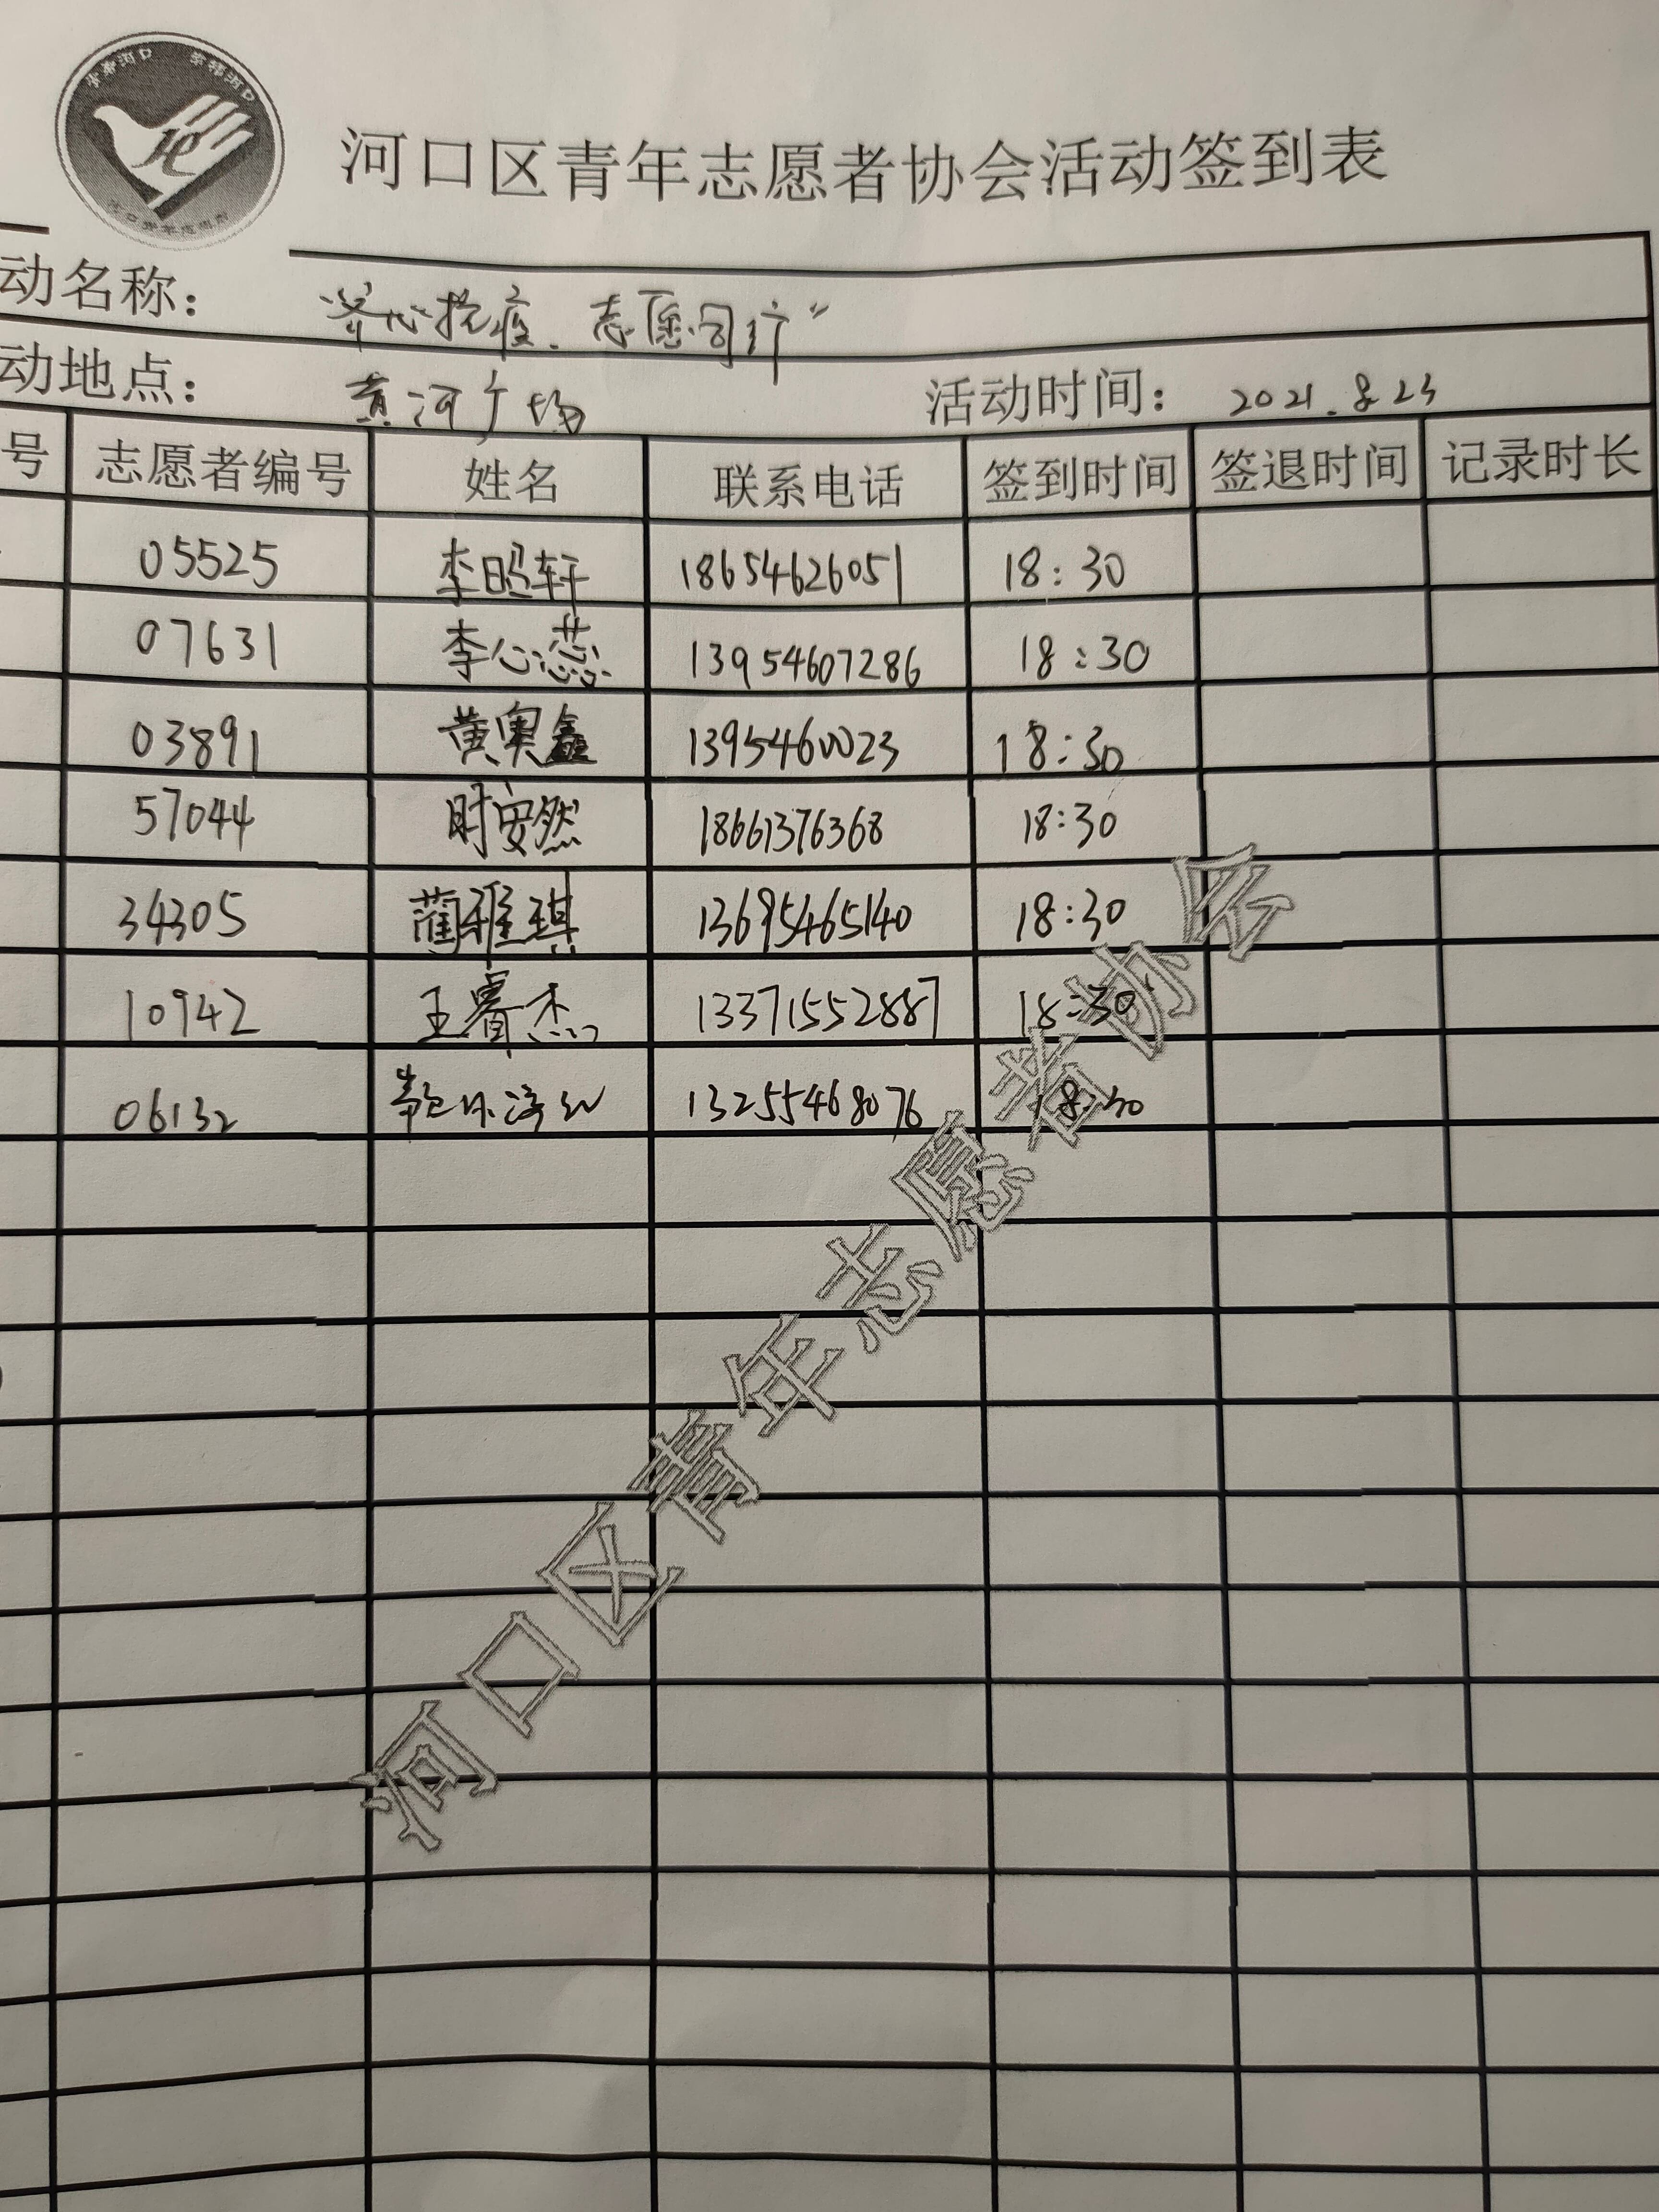 河口区青年志愿者协会活动签到表
动名称： “齐心抗疫．志愿同行”
动地点： 黄河广场 活动时间： 2021.8.23
号 志愿者编号 姓名 联系电话 签到时间 签退时间 记录时长
05525 李昭轩 18654626051 18:30
07631 李心蕊 13954607286 18:30
03891 黄奥鑫 13954600023 18:30
57044 时安然 18661376368 18:30
34305 蔺雅琪 13695465140 18:30
10942 王睿杰 13371552887 18:30
06132 13255468076 18:30
河口区青年志愿者协会